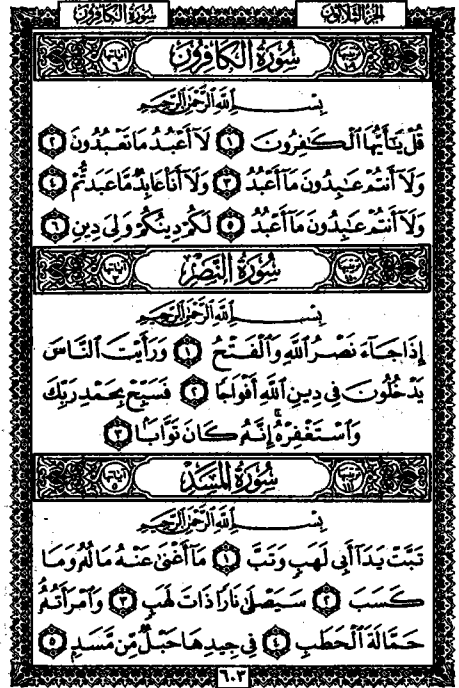 سُورَةُ الكَافِرُونَ
الجُزءُ الثَّلَاثُونَ
سُورَةُ الكَافِرُونَ
بِسْمِ اللَّهِ الرَّحْمَٰنِ الرَّحِيمِ
قُلْ يَٰٓأَيُّهَا ٱلْكَٰفِرُونَ ١ لَآ أَعْبُدُ مَا تَعْبُدُونَ ٢
وَلَآ أَنتُمْ عَٰبِدُونَ مَآ أَعْبُدُ ٣ وَلَآ أَنَا۠ عَابِدٌ مَّا عَبَدتُّمْ ٤
وَلَآ أَنتُمْ عَٰبِدُونَ مَآ أَعْبُدُ ٥ لَكُمْ دِينُكُمْ وَلِىَ دِينِ ٦
سُورَةُ النَّصْرِ
بِسْمِ اللَّهِ الرَّحْمَٰنِ الرَّحِيمِ
إِذَا جَآءَ نَصْرُ ٱللَّهِ وَٱلْفَتْحُ ١ وَرَأَيْتَ ٱلنَّاسَ
يَدْخُلُونَ فِى دِينِ ٱللَّهِ أَفْوَاجًا ٢ فَسَبِّحْ بِحَمْدِ رَبِّكَ
وَٱسْتَغْفِرْهُ ۚ إِنَّهُۥ كَانَ تَوَّابًۢا ٣
سُورَةُ المَسَدِ
بِسْمِ اللَّهِ الرَّحْمَٰنِ الرَّحِيمِ
تَبَّتْ يَدَآ أَبِى لَهَبٍ وَتَبَّ ١ مَآ أَغْنَىٰ عَنْهُ مَالُهُۥ وَمَا
كَسَبَ ٢ سَيَصْلَىٰ نَارًا ذَاتَ لَهَبٍ ٣ وَٱمْرَأَتُهُۥ
حَمَّالَةَ ٱلْحَطَبِ ٤ فِى جِيدِهَا حَبْلٌ مِّن مَّسَدٍۭ ٥
٦٠٣